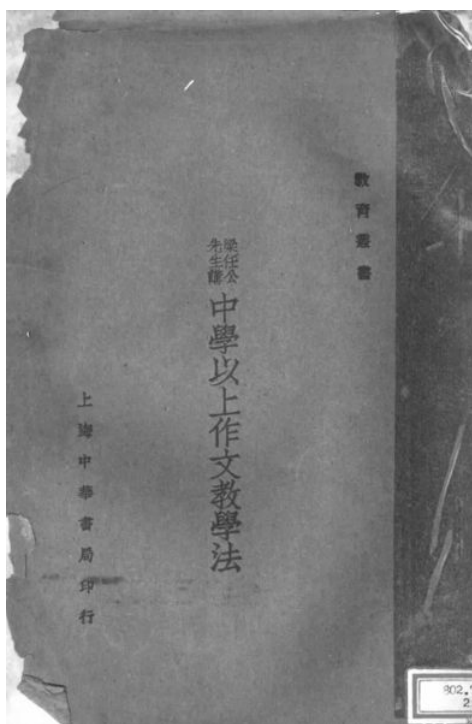 教育叢書
梁任公
先生講
中學以上作文教學法
上海中華書局印行
802.
2